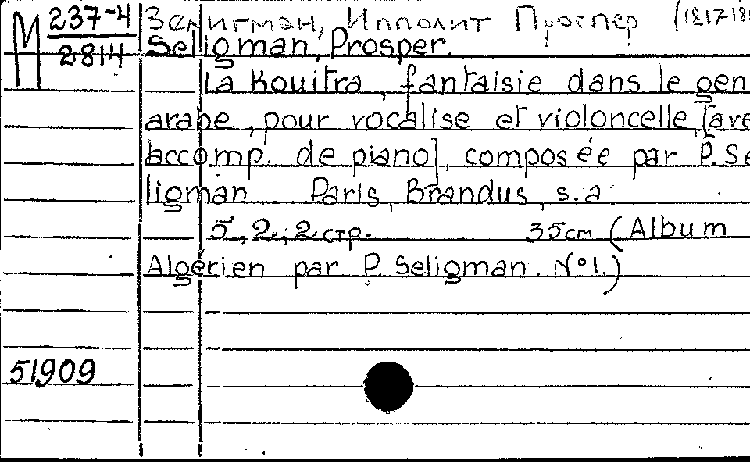 M 237-4
2814
Зелигман, Ипполит Проспер (1817-18
Seligman, Prosper.
La Kouitra, fantaisie dans le gen
arabe, pour vocalise et violoncelle, [ave
accomp. de piano], composée par P. Se
ligman. Paris, Brandus, s.a.
5, 2, 2 стр. 35 cm (Album
Algérien par P. Seligman. N°1.)
51909